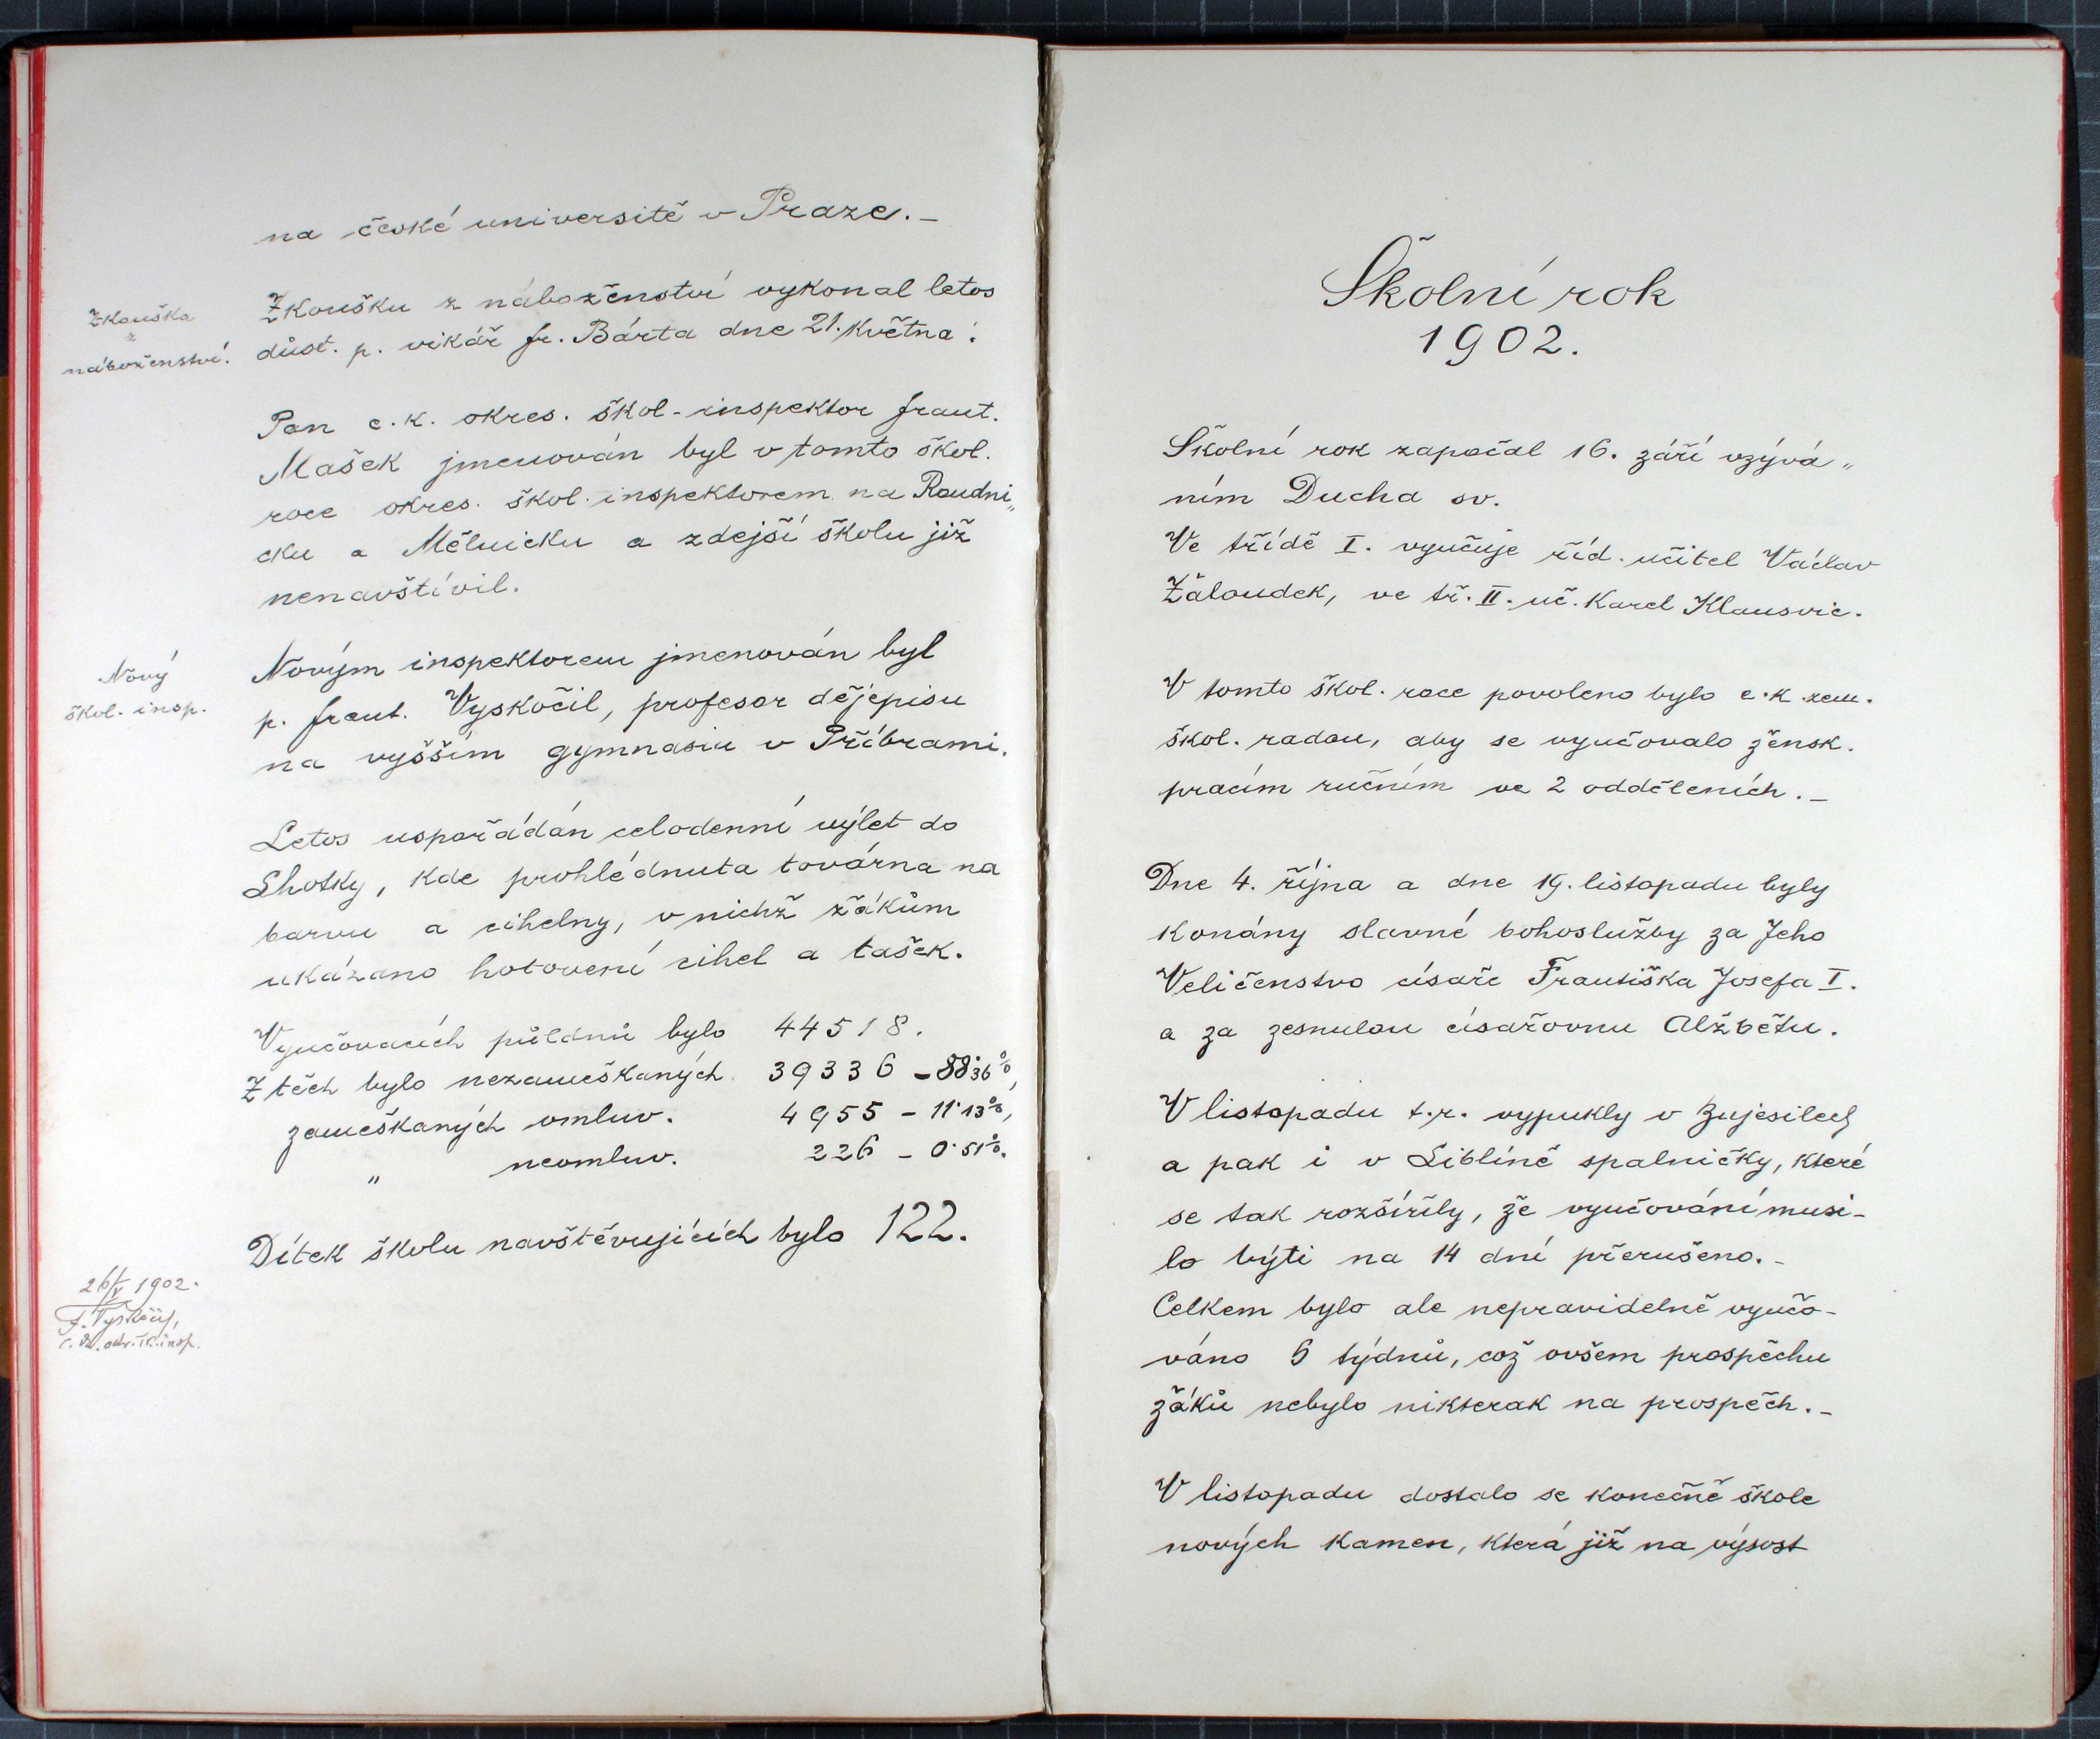 na české universitě v Praze.–
Zkouška
z
náboženství.
Zkoušku z náboženství vykonal letos
důst. p. vikář fr. Bárta dne 21. května.
Pan c.k. okres. škol-inspektor frant.
Mašek jmenován byl v tomto škol.
roce okres. škol. inspektorem na Roudni„
cku a Mělnicku a zdejší školu již
nenavštívil.
Nový
škol. insp.
Novým inspektorem jmenován byl
p. frant. Vyskočil, profesor dějepisu
na vyšším gymnasiu v Příbrami.
Letos uspořádán celodenní výlet do
Lhotky, kde prohlédnuta továrna na
barvu a cihelny, v nichž žákům
ukázano hotovení cihel a tašek.
Vyučovacích půldnů bylo 44518.
Z těch bylo nezameškaných. 39336 – 88·36%,
zameškaných omluv. 4955 – 11·13%,
„ neomluv. 226 – 0·51%.
Dítek školu navštěvujících bylo 122.
26/V 1902.
F. Vyskočil,
c. k. okr. šk. insp.
Školní rok
1902.
Školní rok započal 16. září vzývá„
ním Ducha sv.
Ve třídě I. vyučuje říd. učitel Václav
Žaloudek, ve tř. II. uč. Karel Klausvic.
V tomto škol. roce povoleno bylo c.k. zem.
škol. radou, aby se vyučovalo žensk.
pracím ručním ve 2 odděleních.–
Dne 4. října a dne 19. listopadu byly
konány slavné bohoslužby za Jeho
Veličenstvo císaře Františka Josefa I.
a za zesnulou císařovnu Alžbětu.
V listopadu t.r. vypukly v Bujesilech
a pak i v Liblíně spalničky, které
se tak rozšířily, že vyučování musi-
lo býti na 14 dní přerušeno.–
Celkem bylo ale nepravidelně vyučo-
váno 6 týdnů, což ovšem prospěchu
žáků nebylo nikterak na prospěch.–
V listopadu dostalo se konečně škole
nových kamen, která již na výsost